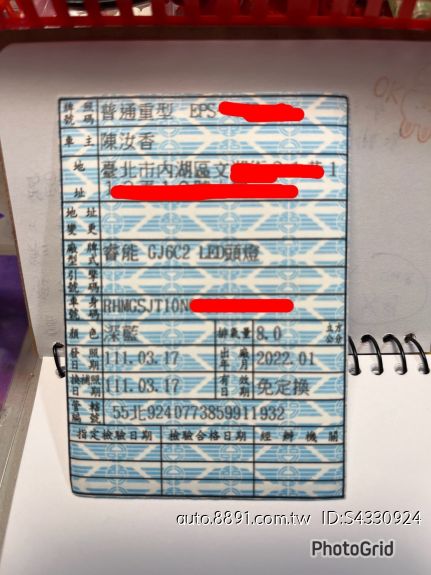 牌照號碼 普通重型 EPS
車主 陳汝香
地址 臺北市內湖區文湖街
地址變更
廠牌型式 睿能 GJ6C2 LED頭燈
引擎號碼
車身號碼 RHMGSJT10N
顏色 深藍 排氣量 8.0 立方公分
發照日期 111.03.17 出廠年月 2022.01
換補照日期 111.03.17 有效日期 免定換
管轄號 55北9240773859911932
指定檢驗日期 檢驗合格日期 經辦機關
auto.8891.com.tw ID:S4330924
PhotoGrid
OK